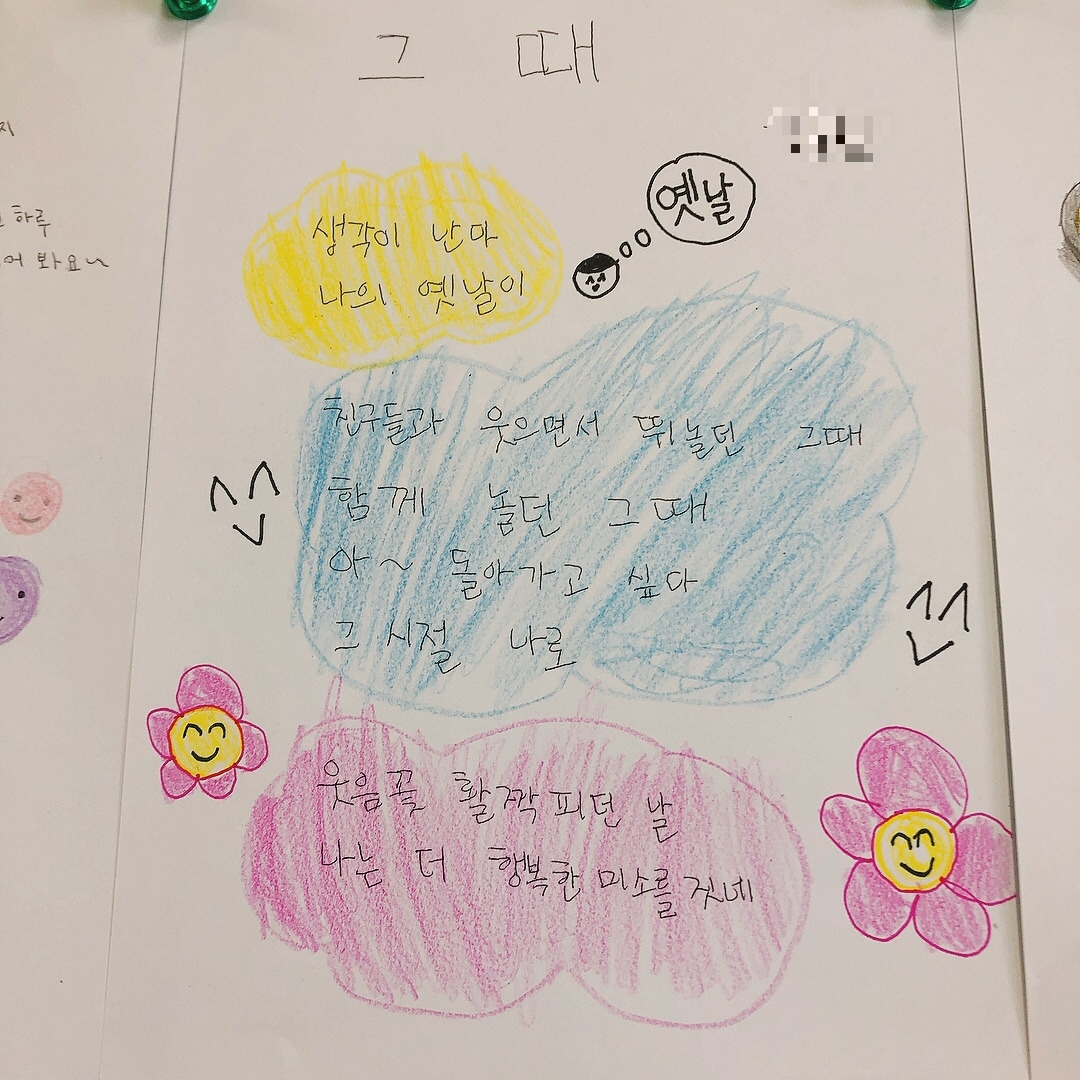 그 때
옛날
생각이 난다
나의 옛날이
친구들과 웃으면서 뛰놀던 그때
함께 놀던 그때
아~ 돌아가고 싶다
그 시절 나로
웃음꽃 활짝 피던 날
나는 더 행복한 미소를 짓네
지
하루
어 봐요~